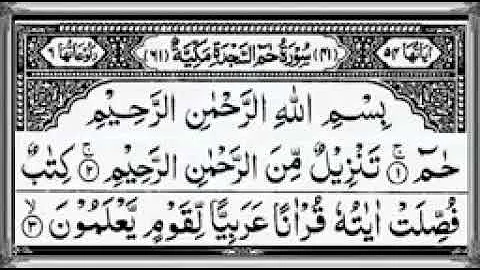 اٰيَاتُهَا ٥٤ (٤١) سُوْرَةُ حٰمٓ السَّجْدَةِ مَكِّيَّةٌ (٦١) رُكُوْعَاتُهَا ٦
بِسْمِ اللّٰهِ الرَّحْمٰنِ الرَّحِيْمِ
حٰمٓ ۚ ١ تَنْزِيْلٌ مِّنَ الرَّحْمٰنِ الرَّحِيْمِ ۚ ٢ كِتٰبٌ
فُصِّلَتْ اٰيٰتُهٗ قُرْاٰنًا عَرَبِيًّا لِّقَوْمٍ يَّعْلَمُوْنَ ۙ ٣